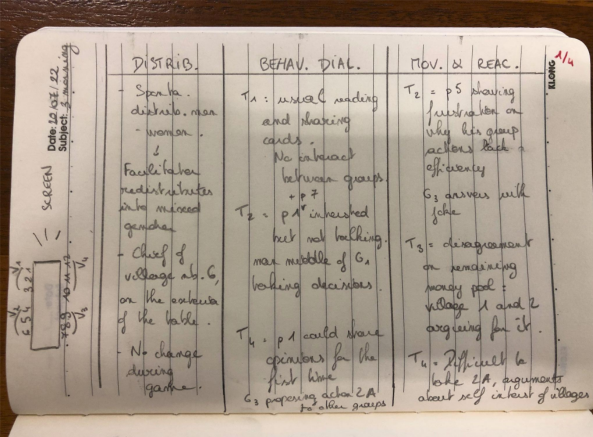 Date: 20/07/22
Subject: 3 morning
KLONG
1/4
SCREEN
V1
V4
6 5 4 3 2 1
7 8 9 10 11 12
V2
V3
DISTRIB.
- Sponta.
distrib. men
- women.
Facilitator
redistributes
into mixed
gender
- Chief of
village nb. 6,
on the exterior
of the table.
- No change
during
game.
BEHAV. DIAL.
T1 : usual reading
and sharing
cards.
No interact
between groups.
+ p7
T2 = p1 interested
but not talking.
man middle of G1
taking decisions.
T4 = p1 could share
opinions for the
first time
G3 proposing action 2A
to other groups
MOV. & REAC.
T2 = p5 showing
frustration on
why his group
actions lack
efficiency
G3 answers with
joke
T3 = disagreement
on remaining
money pool :
village 1 and 2
argueing for it.
T4 = Difficult to
take 2A, arguments
about self interest of villages